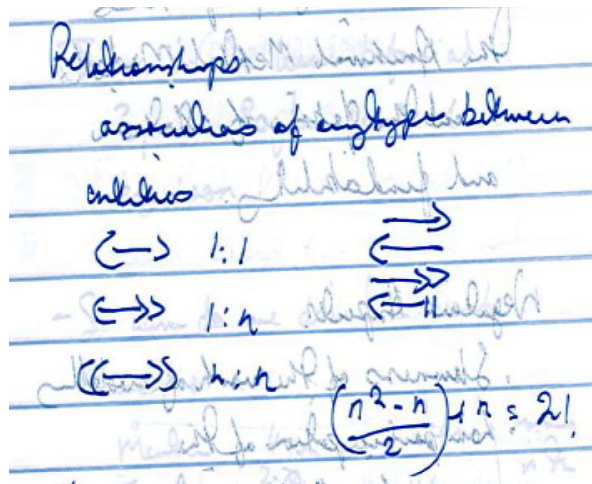 Relationships
associations of any types between
entities
<-> 1:1
<->> 1:n
<<->> n:n
(n² - n / 2) + n = 21